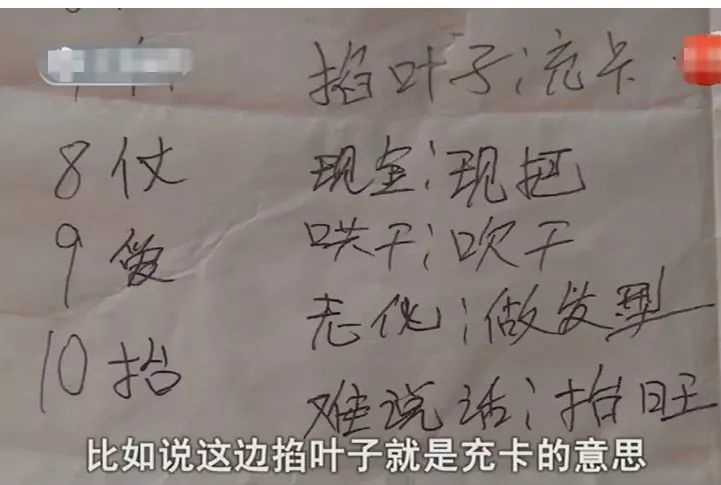 掐叶子:充卡
8 仗 现金:现把
9 爱 哄干:吹干
10 抬 老化:做发型
难说话:抬旺
比如说这边掐叶子就是充卡的意思